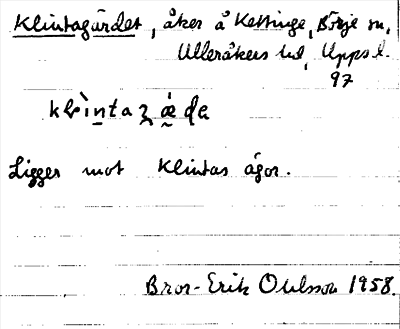 Klintagärdet, åker å Kettinge, Börje sn,
Ulleråkers hd, Upps.l.
97
klìntagǽde
Ligger mot Klintas ägor.
Bror-Erik Ohlsson 1958.